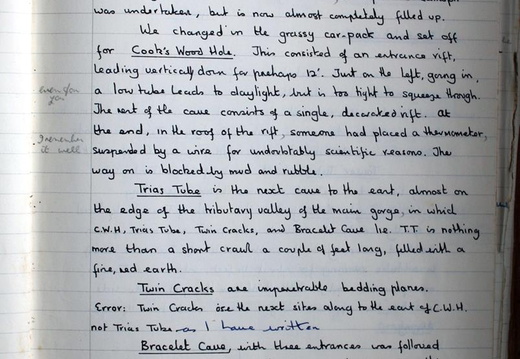 was undertaken, but is now almost completely filled up.
We changed in the grassy car-park and set off
for Cook's Wood Hole. This consisted of an entrance rift,
leading vertically down for perhaps 12'. Just on the left, going in,
a low tube leads to daylight, but is too tight to squeeze through.
The rest of the cave consists of a single, decorated rift. At
the end, in the roof of the rift, someone had placed a thermometer,
suspended by a wire for undoubtably scientific reasons. The
way on is blocked by mud and rubble.
Trias Tube is the next cave to the east, almost on
the edge of the tributary valley of the main gorge, in which
C.W.H, Trias Tube, Twin Cracks, and Bracelet Cave lie. T.T. is nothing
more than a short crawl a couple of feet long, filled with a
fine, red earth.
Twin Cracks are impenetrable bedding planes.
Error: Twin Cracks are the next sites along to the east of C.W.H.
not Trias Tube as I have written
Bracelet Cave, with three entrances was followed
even for
you
I remember
it well